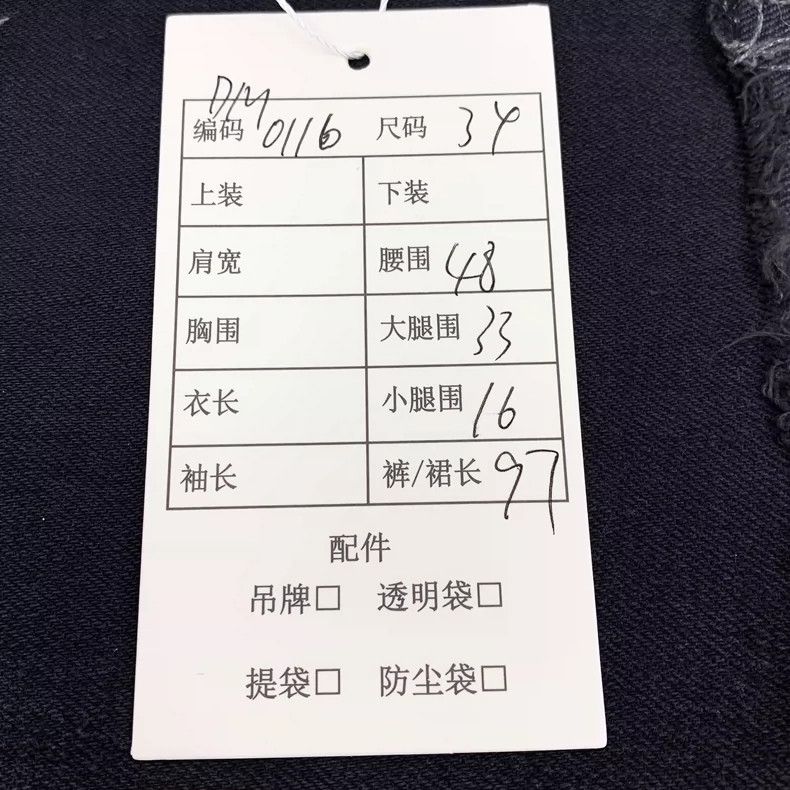 DIM
编码 0116 尺码 34
上装 下装
肩宽 腰围 48
胸围 大腿围 33
衣长 小腿围 16
袖长 裤/裙长 97
配件
吊牌□ 透明袋□
提袋□ 防尘袋□